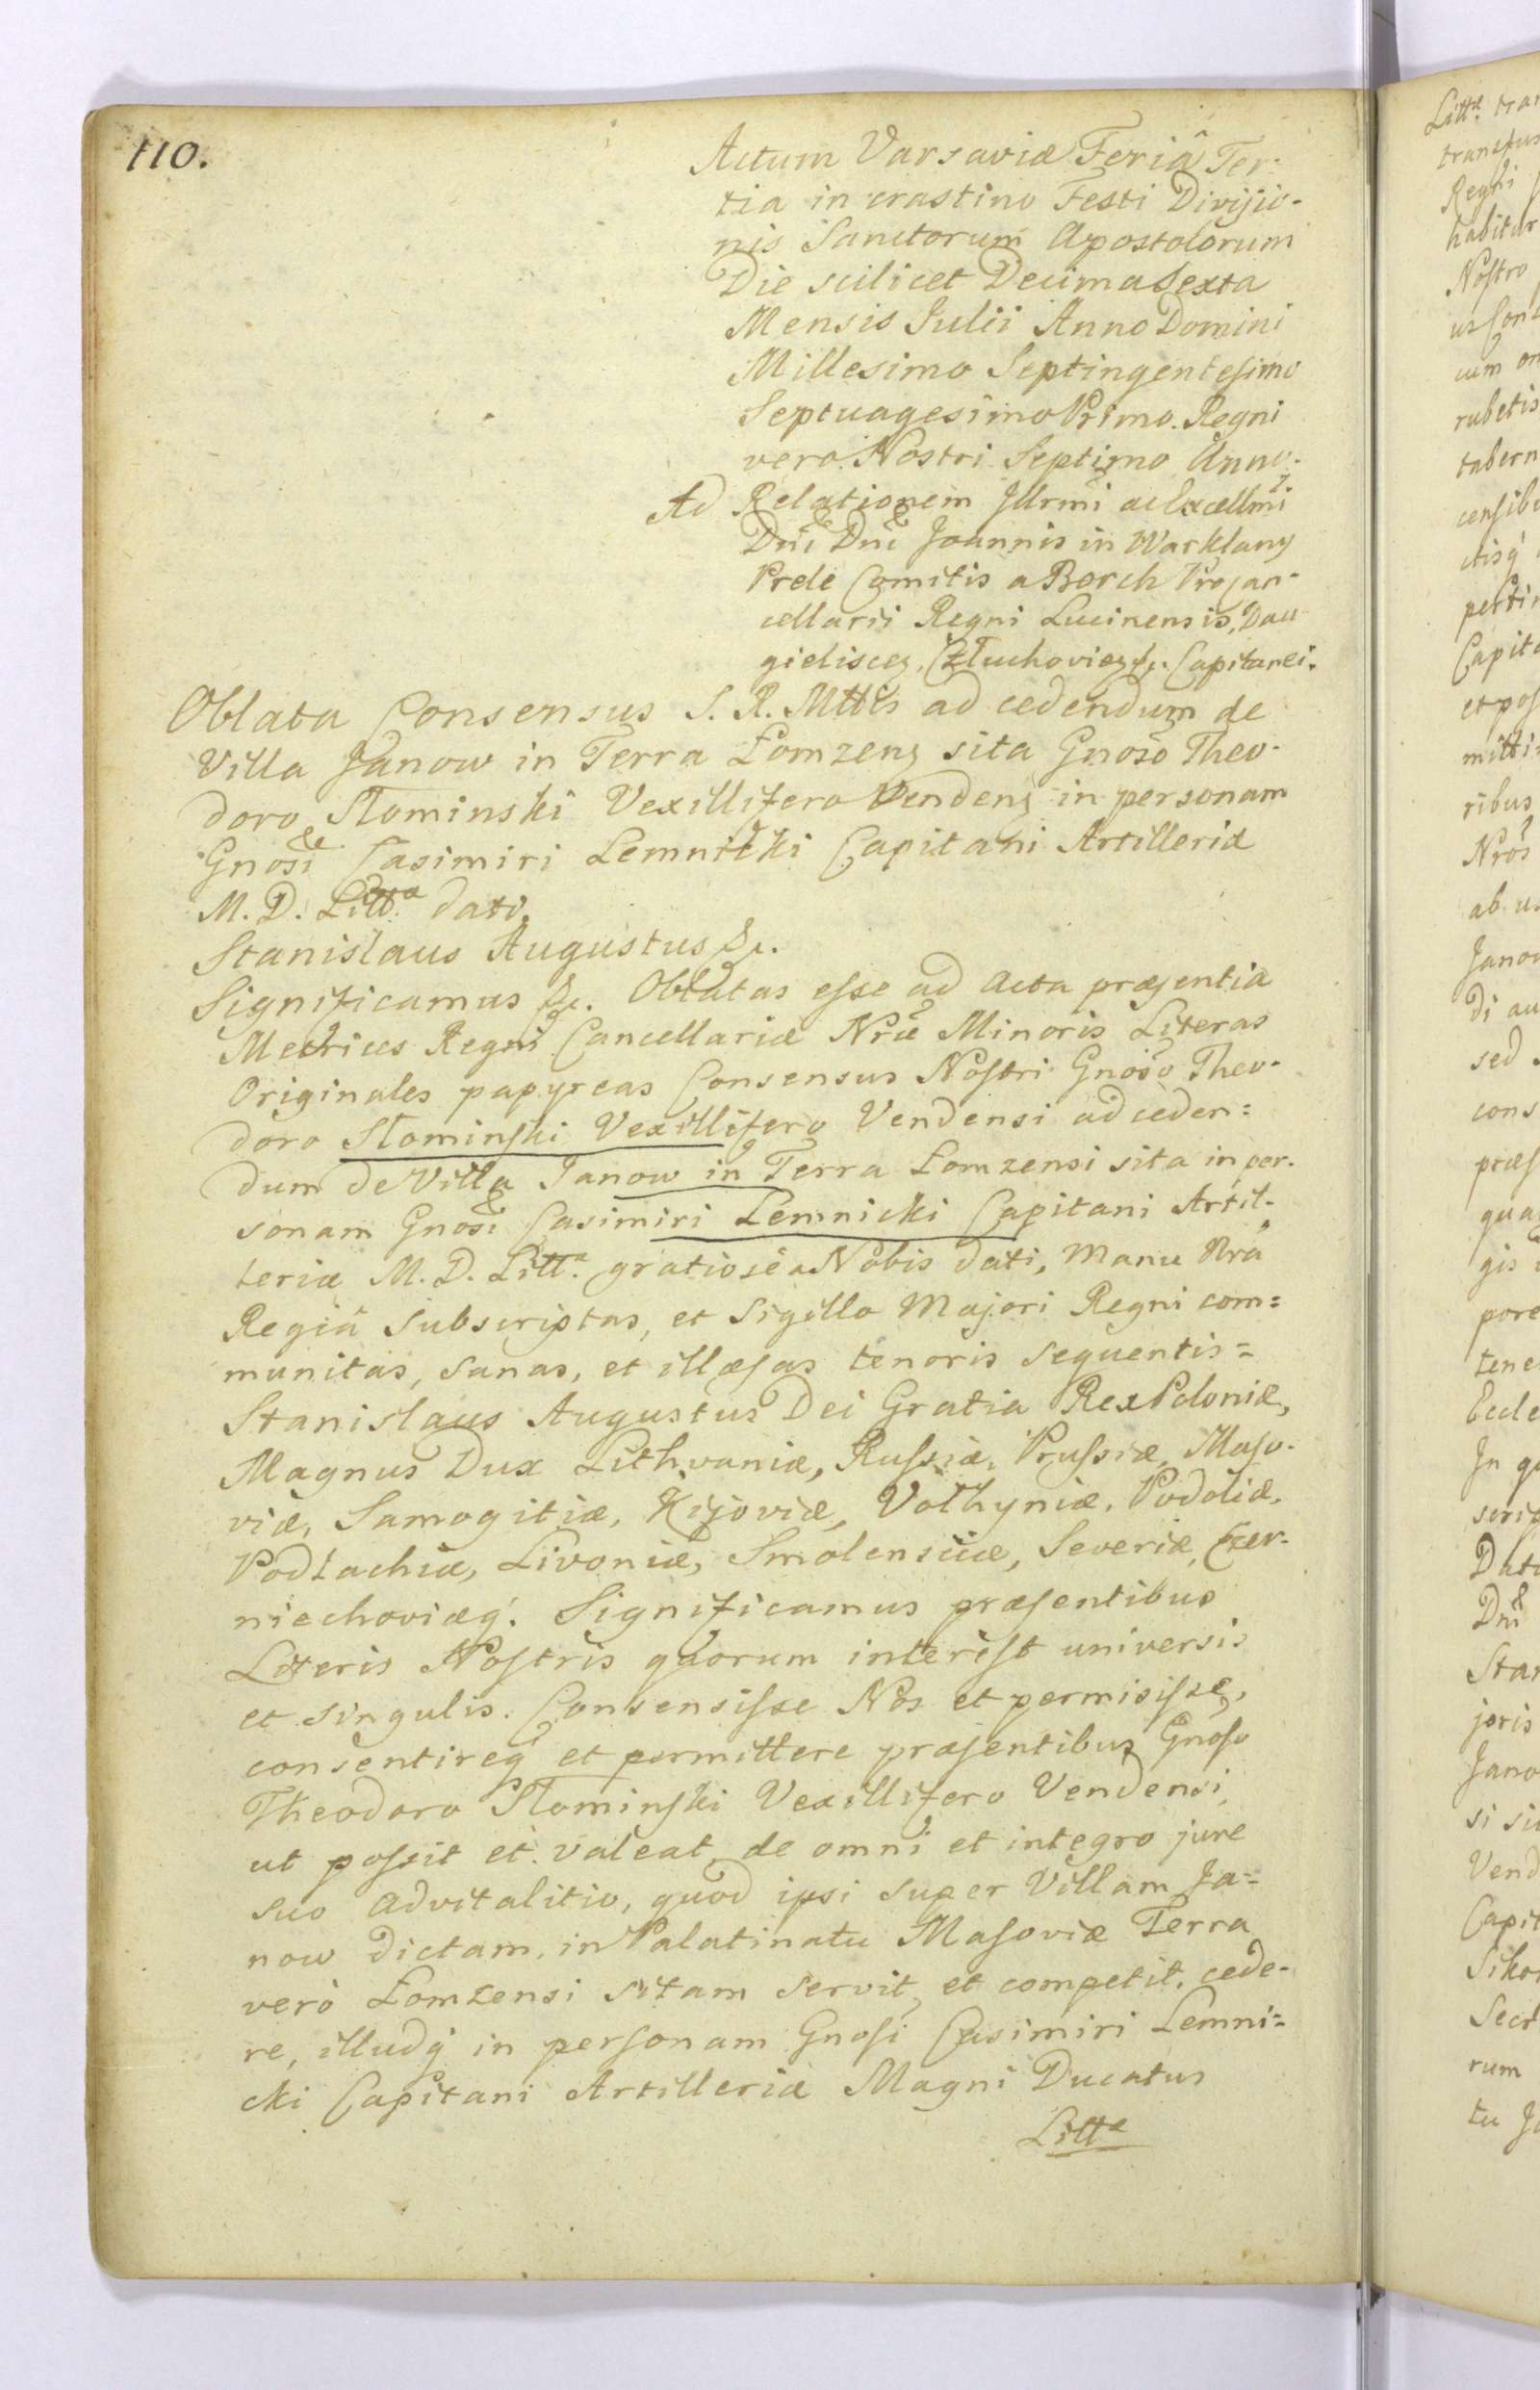 110.
Actum Varsaviæ Feriâ Ter-
tia in crastino Festi Divisio-
nis Sanctorum Apostolorum
Die scilicet Decima Sexta
Mensis Julii Anno Domini
Millesimo Septingentesimo
Septuagesimo Primo. Regni
vero Nostri Septimo Anno.
Ad Relationem Jllrmi ac Excellmi
Dni Dni Joannis in Warklany
Prele Comitis a Borch Procan-
cellarii Regni Lucinensis, Dau
gieliscez, Człuchoviez &c. Capitanei.
Oblata Consensus S. R. Mttis ad cedendum de
Villa Janow in Terra Łomzenz sita Gnoso Theo-
doro Słominski Vexillifero Vendenz in personam
Gnosi Casimiri Lemnicki Capitani Artilleriæ
M. D. Litt.æ dati.
Stanislaus Augustus &c.
Significamus &c. Oblatas esse ad Acta præsentia
Metrices Regni Cancellariæ Nræ Minoris Literas
Originales papyreas Consensus Nostri Gnoso Theo-
doro Słominski Vexillifero Vendensi ad ceden=
dum de Villa Janow in Terra Łomzensi sita in per-
sonam Gnosi Casimiri Lemnicki Capitani Artil-
leriæ M. D. Litt.æ gratiose a Nobis dati, Manu Nra
Regiâ Subscriptas, et Sigillo Majori Regni com=
munitas, sanas, et illæsas tenoris sequentis=
Stanislaus Augustus Dei Gratia Rex Poloniæ,
Magnus Dux Lithvaniæ, Russiæ, Prussiæ, Maso-
viæ, Samogitiæ, Kijoviæ, Volhyniæ, Podoliæ,
Podlachiæ, Livoniæ, Smolensciæ, Severiæ, Czer-
niechoviæq. Significamus præsentibus
Literis Nostris quorum interest universis
et singulis. Consensisse Nos et permisisse,
consentireq et permittere præsentibus Gnoso
Theodoro Słominski Vexillifero Vendensi,
ut possit et valeat, de omni et integro jure
suo advitalitio, quod ipsi super Villam Ja=
now dictam, in Palatinatu Masoviæ Terra
verò Łomzensi sitam servit, et competit, cede-
re, illudq in personam Gnosi Casimiri Lemni=
cki Capitani Artilleriæ Magni Ducatus
Littæ
Littæ
Regni
Nostro
Capit
mitti=
ribus
Nros
sed
cons
pore
Eccle
Dni
joris
Vend
rum